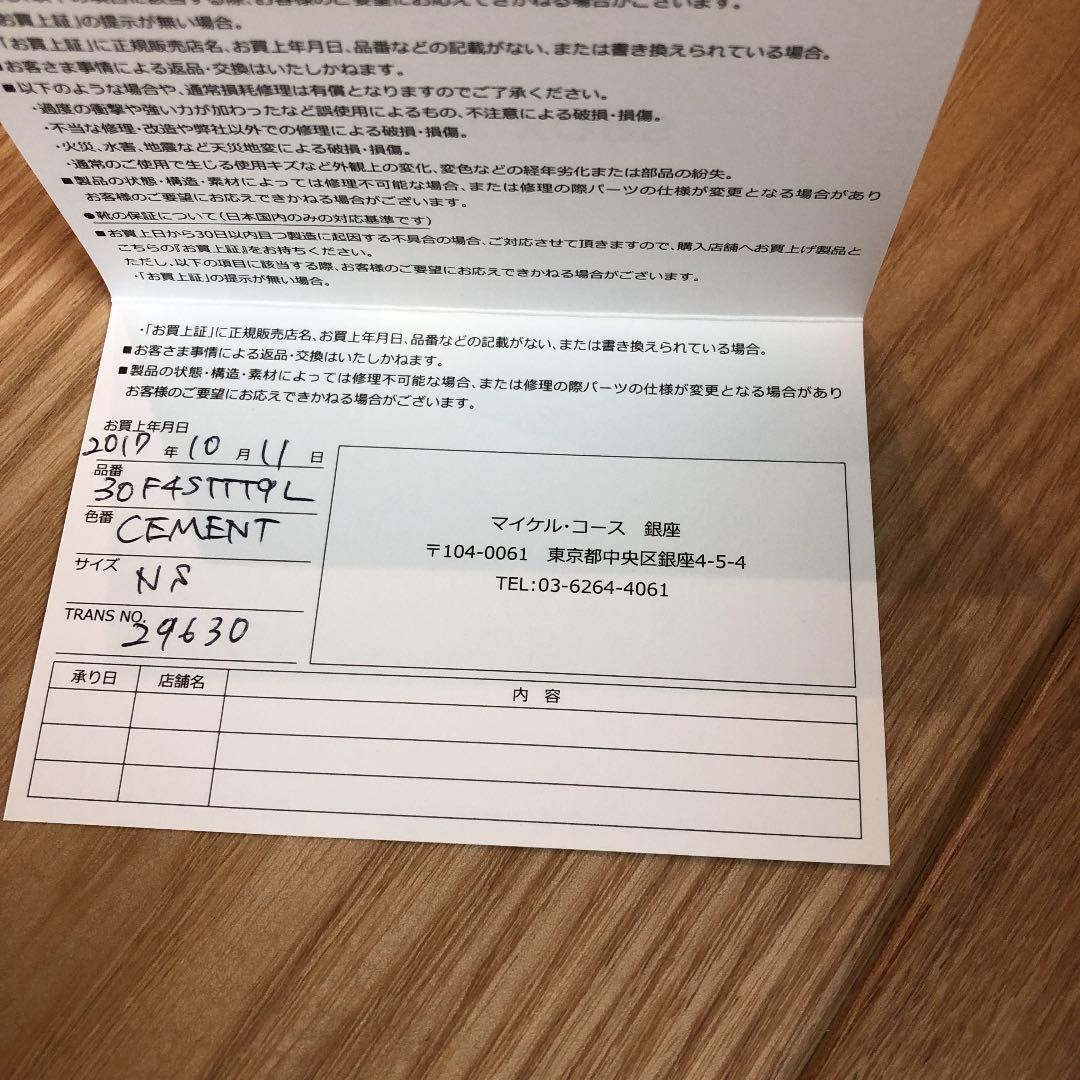 お買上証」の提示が無い場合。
「お買上証」に正規販売店名、お買上年月日、品番などの記載がない、または書き換えられている場合。
■お客さま事情による返品・交換はいたしかねます。
■以下のような場合や、通常損耗修理は有償となりますのでご了承ください。
・過度の衝撃や強い力が加わったなど誤使用によるもの、不注意による破損・損傷。
・不当な修理・改造や弊社以外での修理による破損・損傷。
・火災、水害、地震など天災地変による破損・損傷。
・通常のご使用で生じる使用キズなど外観上の変化、変色などの経年劣化または部品の紛失。
■製品の状態・構造・素材によっては修理不可能な場合、または修理の際パーツの仕様が変更となる場合があり
お客様のご要望にお応えできかねる場合がございます。
●靴の保証について(日本国内のみの対応基準です)
■お買上日から30日以内且つ製造に起因する不具合の場合、ご対応させて頂きますので、購入店舗へお買上げ製品と
こちらの『お買上証』をお持ちください。
ただし、以下の項目に該当する際、お客様のご要望にお応えできかねる場合がございます。
・「お買上証」の提示が無い場合。
・「お買上証」に正規販売店名、お買上年月日、品番などの記載がない、または書き換えられている場合。
■お客さま事情による返品・交換はいたしかねます。
■製品の状態・構造・素材によっては修理不可能な場合、または修理の際パーツの仕様が変更となる場合があり
お客様のご要望にお応えできかねる場合がございます。
お買上年月日
2017 年 10 月 11 日
品番
30F4STTT9L
色番 CEMENT
サイズ NS
TRANS NO. 29630
マイケル・コース 銀座
〒104-0061 東京都中央区銀座4-5-4
TEL:03-6264-4061
承り日 店舗名 内 容